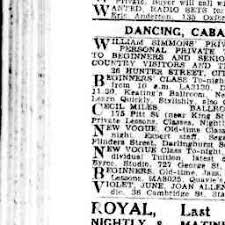 Private, Buyer will call w
WANTED, RADIO SETS for
Eric Anderton, 135 Oxfor
DANCING, CABA
WILLIAM SIMMONS' PRI
PERSONAL PRIVATE
TO BEGINNERS AND SENIO
COUNTRY VISITORS AND T
36 HUNTER STREET, CIT
BEGINNERS' CLASS To-nig
from 10 a.m. LA3130. D
11.30, Keating's Ballroom, Ne
Learn Quickly, Stylishly, also
CECIL MILES BALLRO
175 Pitt St (near King St
Private Lessons, Classes, Night
NEW VOGUE, Old-time Class
night. Expert staff. Sega
Flinders Street, Darlinghurst S
NEW VOGUE Class To-night,
dividual Tuition, latest
Byrne Studio, 727 George St.
BEGINNERS. Old-time, Jazz,
Lessons. MA8025. Quayle's
VIOLET, JUNE, JOAN ALLEN
die. 36 Cambridge St. Sta
ROYAL, Last
NIGHTLY & MATINE